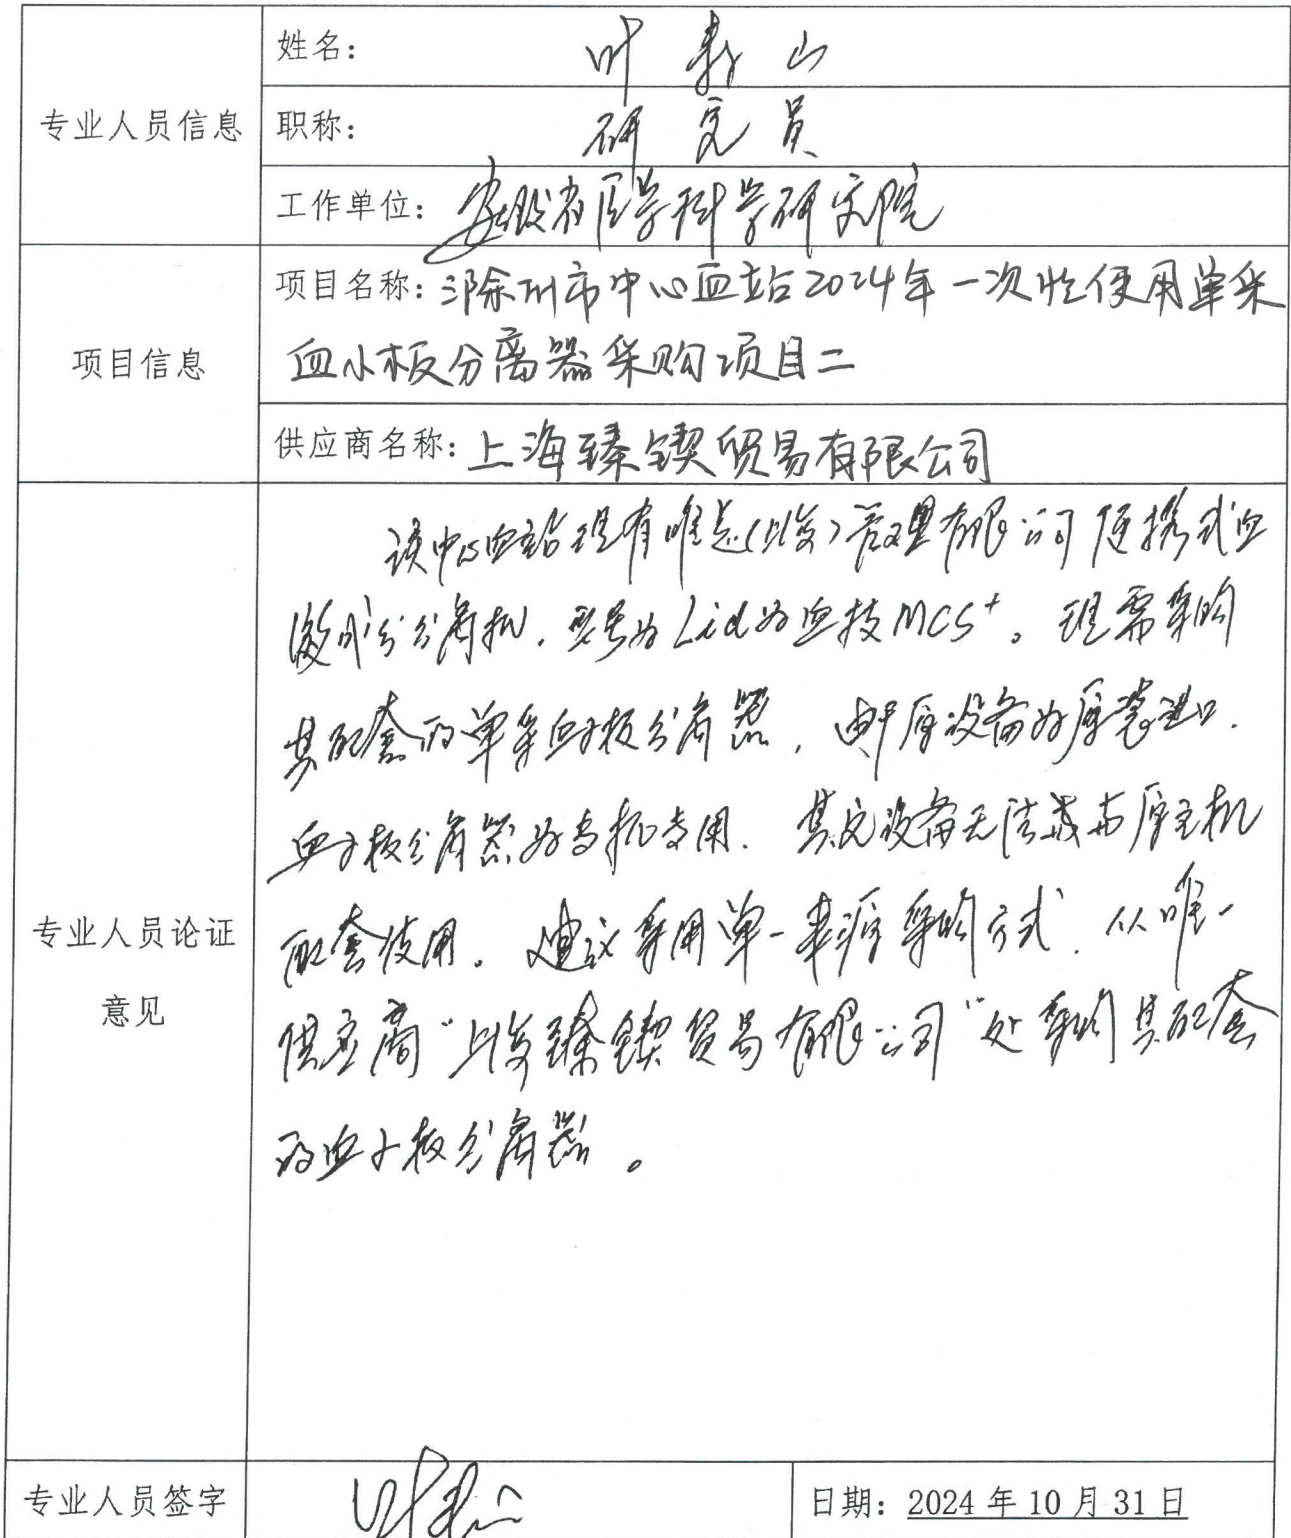 姓名：叶寿山
专业人员信息
职称：研究员
工作单位：安徽省医学科学研究院
项目名称：滁州市中心血站2024年一次性使用单采
项目信息
血小板分离器采购项目二
供应商名称：上海臻锲贸易有限公司
该中心血站现有唯美(上海)管理有限公司便携式血
液成分分离机，型号为 血技MCS+。现需采购
其配套的单采血小板分离器，由于原设备为原装进口．
血小板分离器为专机专用．其它设备无法或与原主机
专业人员论证
意见
配套使用。建议采用单一来源采购方式．从唯一
供应商“上海臻锲贸易有限公司”处采购其配套
的血小板分离器。
专业人员签字 叶寿山 日期：2024 年 10 月 31 日